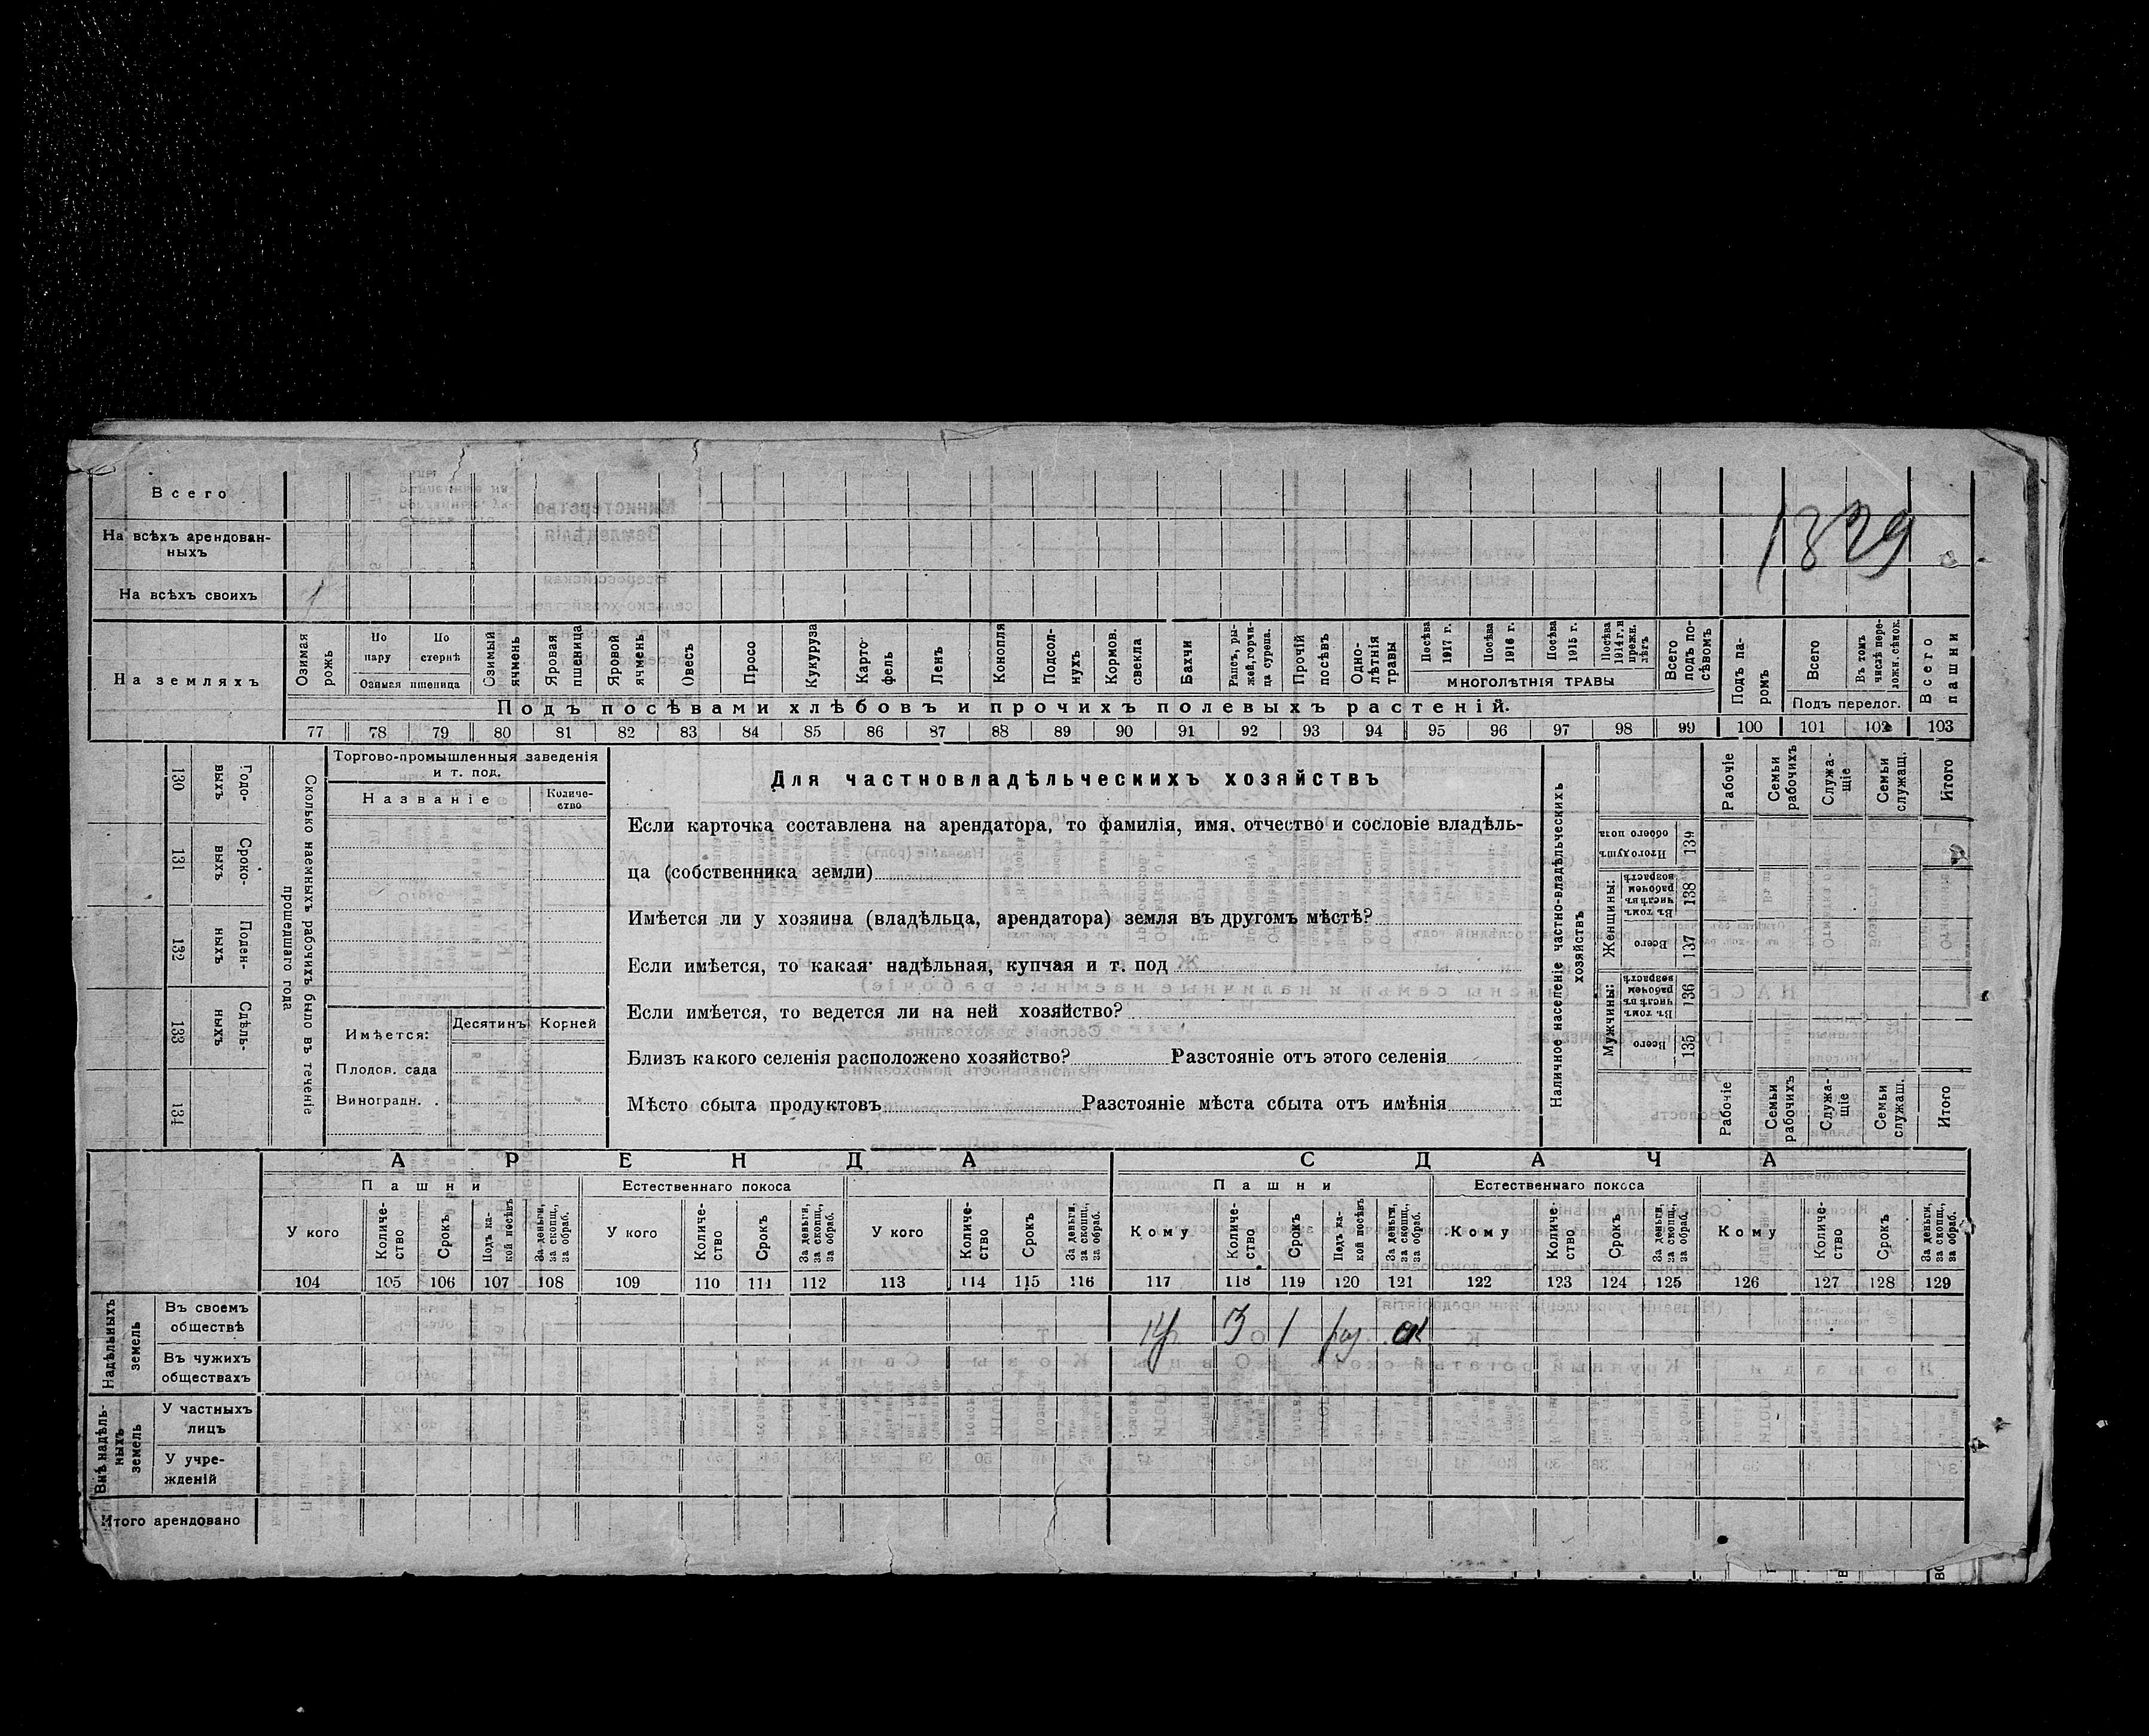 Всего
На всѣхъ арендован-
ныхъ
На всѣхъ своихъ
1829
На земляхъ
Озимая рожь
По пару
По стернѣ
Озимая пшеница
Озимый ячмень
Яровая пшеница
Яровой ячмень
Овесъ
Просо
Кукуруза
Карто-
фель
Ленъ
Конопля
Подсол-
нухъ
Кормов. свекла
Бахчи
Рапсъ, ры-
жей, горчи-
ца сурепа.
Прочій посѣвъ
Одно-
лѣтнія травы
Посѣва 1917 г.
Посѣва 1916 г.
Посѣва 1915 г.
Посѣва 1914 г. и прежн. лѣтъ
МНОГОЛѢТНІЯ ТРАВЫ
Всего подъ по-
сѣвомъ
Подъ па-
ромъ
Всего
Въ томъ числѣ пере-
ложн. сѣнок.
Подъ перелог.
Всего пашни
Подъ посѣвами хлѣбовъ и прочихъ полевыхъ растеній.
77 78 79 80 81 82 83 84 85 86 87 88 89 90 91 92 93 94 95 96 97 98 99 100 101 102 103
130 Годо-
выхъ
131 Сроко-
выхъ
132 Поден-
ныхъ
133 Сдѣль-
ныхъ
134
Сколько наемныхъ рабочихъ было въ теченіе
прошедшаго года
Торгово-промышленныя заведенія
и т. под.
Названіе
Количе-
ство
Имѣется:
Десятинъ
Корней
Плодов. сада
Виноградн. .
Для частновладѣльческихъ хозяйствъ
Если карточка составлена на арендатора, то фамилія, имя, отчество и сословіе владѣль-
ца (собственника земли)
Имѣется ли у хозяина (владѣльца, арендатора) земля въ другомъ мѣстѣ?
Если имѣется, то какая: надѣльная, купчая и т. под
Если имѣется, то ведется ли на ней хозяйство?
Близъ какого селенія расположено хозяйство? Разстояніе отъ этого селенія
Мѣсто сбыта продуктовъ Разстояніе мѣста сбыта отъ имѣнія
Наличное населеніе частно-владѣльческихъ
хозяйствъ
Рабочіе
Семьи рабочихъ
Служа-
щіе
Семьи служащ.
Итого
Итого душъ обоего пола 139
Женщины:
Въ томъ числѣ въ рабочем возрастѣ 138
Всего 137
Мужчины:
Въ томъ числѣ въ рабочем возрастѣ 136
Всего 135
Рабочіе
Семьи рабочихъ
Служа-
щіе
Семьи служащ.
Итого
АРЕНДА
СДАЧА
Пашни
Естественнаго покоса
Пашни
Естественнаго покоса
У кого
Количе-
ство
Срокъ
Подъ ка-
кой посѣвъ
За деньги, за скопщ., за обраб.
У кого
Количе-
ство
Срокъ
За деньги, за скопщ., за обраб.
У кого
Количе-
ство
Срокъ
За деньги, за скопщ., за обраб.
Кому
Количе-
ство
Срокъ
Подъ ка-
кой посѣвъ
За деньги, за скопщ., за обраб.
Кому
Количе-
ство
Срокъ
За деньги, за скопщ., за обраб.
Кому
Количе-
ство
Срокъ
За деньги, за скопщ., за обраб.
104 105 106 107 108 109 110 111 112 113 114 115 116 117 118 119 120 121 122 123 124 125 126 127 128 129
Надѣльныхъ земель
Въ своемъ
обществѣ
3 1
Въ чужихъ
обществахъ
Внѣ надѣль-
ныхъ земель
У частныхъ
лицъ
У учре-
жденій
Итого арендовано